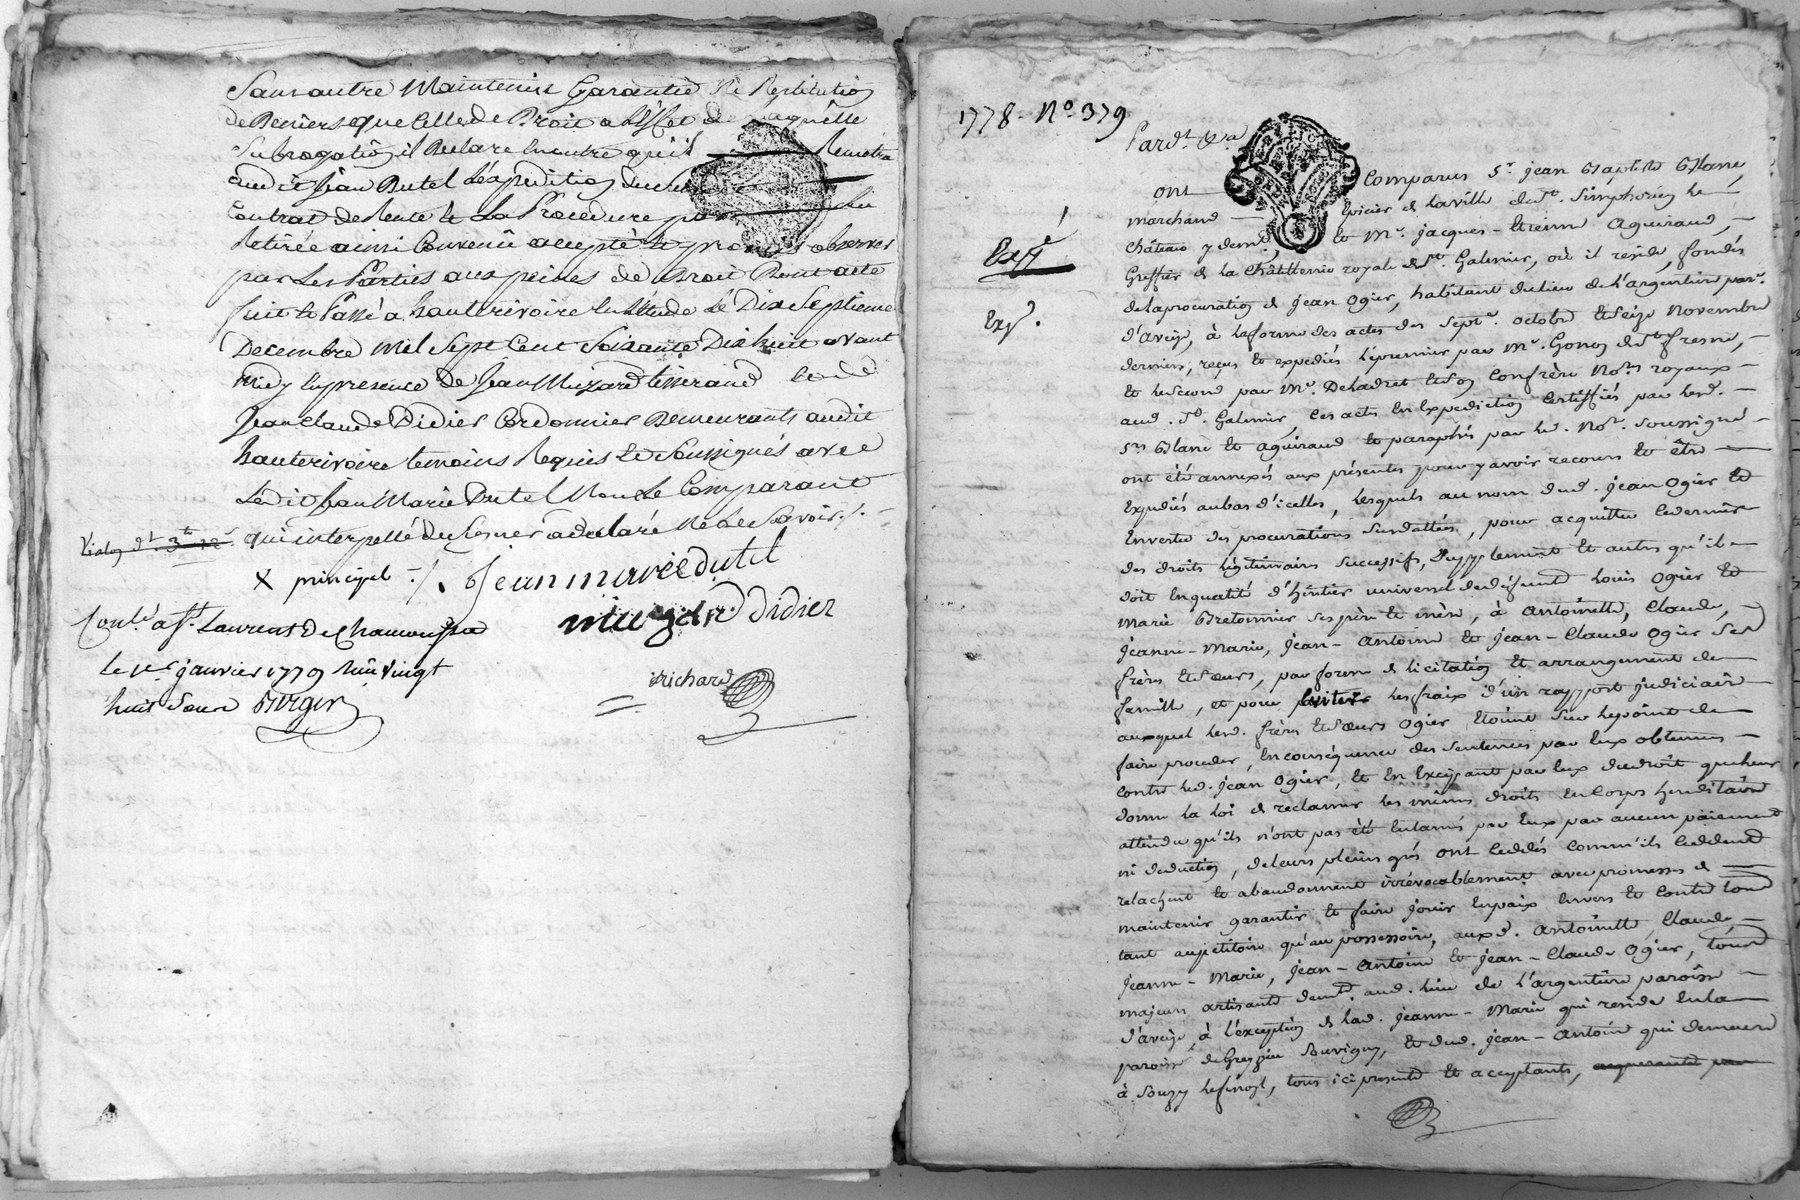 Sans autre Maintenir Garantie Ni Restitution
de Deniers que Celle de Droit a l'effet de laquelle
Subrogation il Declare en outre qu'il Remettra
audit Jean Dutel l'expedition du
Contrat de Rente et La Procedure par lui
Retirée ainsi Convenû accepté et promis observer
par Les Parties aux peines de Droit Dont acte
fait et Passé a hauterivoire En l'Etude Le Dix Septieme
Decembre Mil Sept Cent Soixante Dix huit avant
Midy En presence de Jean Muzard tisserand et de
Jean Claude Didier Cordonnier Demeurants audit
hauterivoire temoins Requis et Soussignés avec
Ledit Jean Marie Dutel Non Le Comparant
qui interpellé de Signer a declaré Ne le Sçavoir ./.
X principal ./.
Jean marie dutel
muzard didier
Conlé a St. Laurent de Chamousset
le 1er janvier 1779 Reçû vingt
huit sous
Richard
1778 - No. 379
Pardt. &a.
ont Comparus Sr. jean Baptiste Blanc,
marchand Epicier de la ville de St. Simphorien le
Château y demt., et Me. jacques-Etienne Aguiraud,
Greffier de la Châtellenie royale de St. Galmier, où il reside, fondés
de la procuration de jean Ogier, habitant du lieu de l'argentiere parse.
d'aveize, à la forme des actes des Sept. octobre et Seize Novembre
derniers, reçus et expediés le premier par Me. Gonon de St. fresne,
et le Second par Me. Deladret et Son Confrère Nores. royaux
aud. St. Galmier, Ces actes En Expedition Certiffiés par lesd.
Srs Blanc et aguiraud et paraphés par led. Nore. Soussigné
ont été annexés aux présentes pour y avoir recours et être
Expediés au bas d'icelles, lesquels au nom dud. jean Ogier et
En vertu des procurations Susdattées, pour acquitter le dernier
des droits légitimaires Successifs, Supplement et autres qu'il
doit En qualité d'héritier universel de deffunts Louis Ogier et
Marie Bretonnier Ses père et mère, à Antoinette, Claude,
jeanne-Marie, jean-Antoine et jean-Claude Ogier Ses
frères et Sœurs, par forme de licitation et arrangement de
famille, et pour Eviter les fraix d'un rapport judiciaire
auxquel lesd. frères et Sœurs Ogier Etoient Sur le point de
faire proceder, En conséquence des Sentences par Eux obtenues
contre led. jean Ogier, et En Excipant par Eux du droit que leur
donne la loi de reclamer les mêmes droits En Corps hereditaire
attendu qu'ils n'ont pas été Entamés par Eux par aucun paiement
ni deduction, de leurs pleins grés ont Ceddés comm'ils Ceddent
relachent et abandonnent irrévocablement avec promesses de
maintenir garantir et faire jouir En paix Envers et Contre tous
tant au petitoire qu'au possessoire, auxd. Antoinette, Claude
jeanne-Marie, jean-Antoine et jean-Claude Ogier, tous
majeurs artisants demts. aud. lieu de l'argentiere paroisse
d'aveize, à l'exception de lad. jeanne-Marie qui reside En la
paroisse de Grezieu Souvigny, et dud. jean-Antoine qui demeure
à Souzy , tous ici presents et acceptants, acquerants par
Expé
Exp.